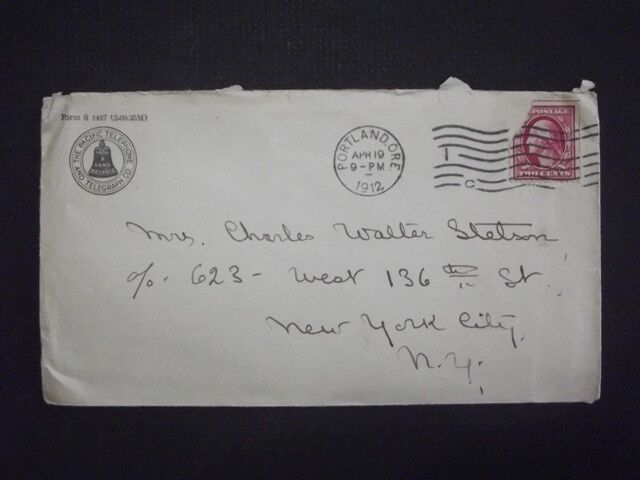 Form S 1447 (2-08-25M)
THE PACIFIC TELEPHONE
AND TELEGRAPH CO.
PORTLAND, ORE.
APR 19
9-PM
1912
POSTAGE
TWO CENTS
Mrs. Charles Walter Stetson
c/o. 623 - West 136th St.
New York City,
N.Y.